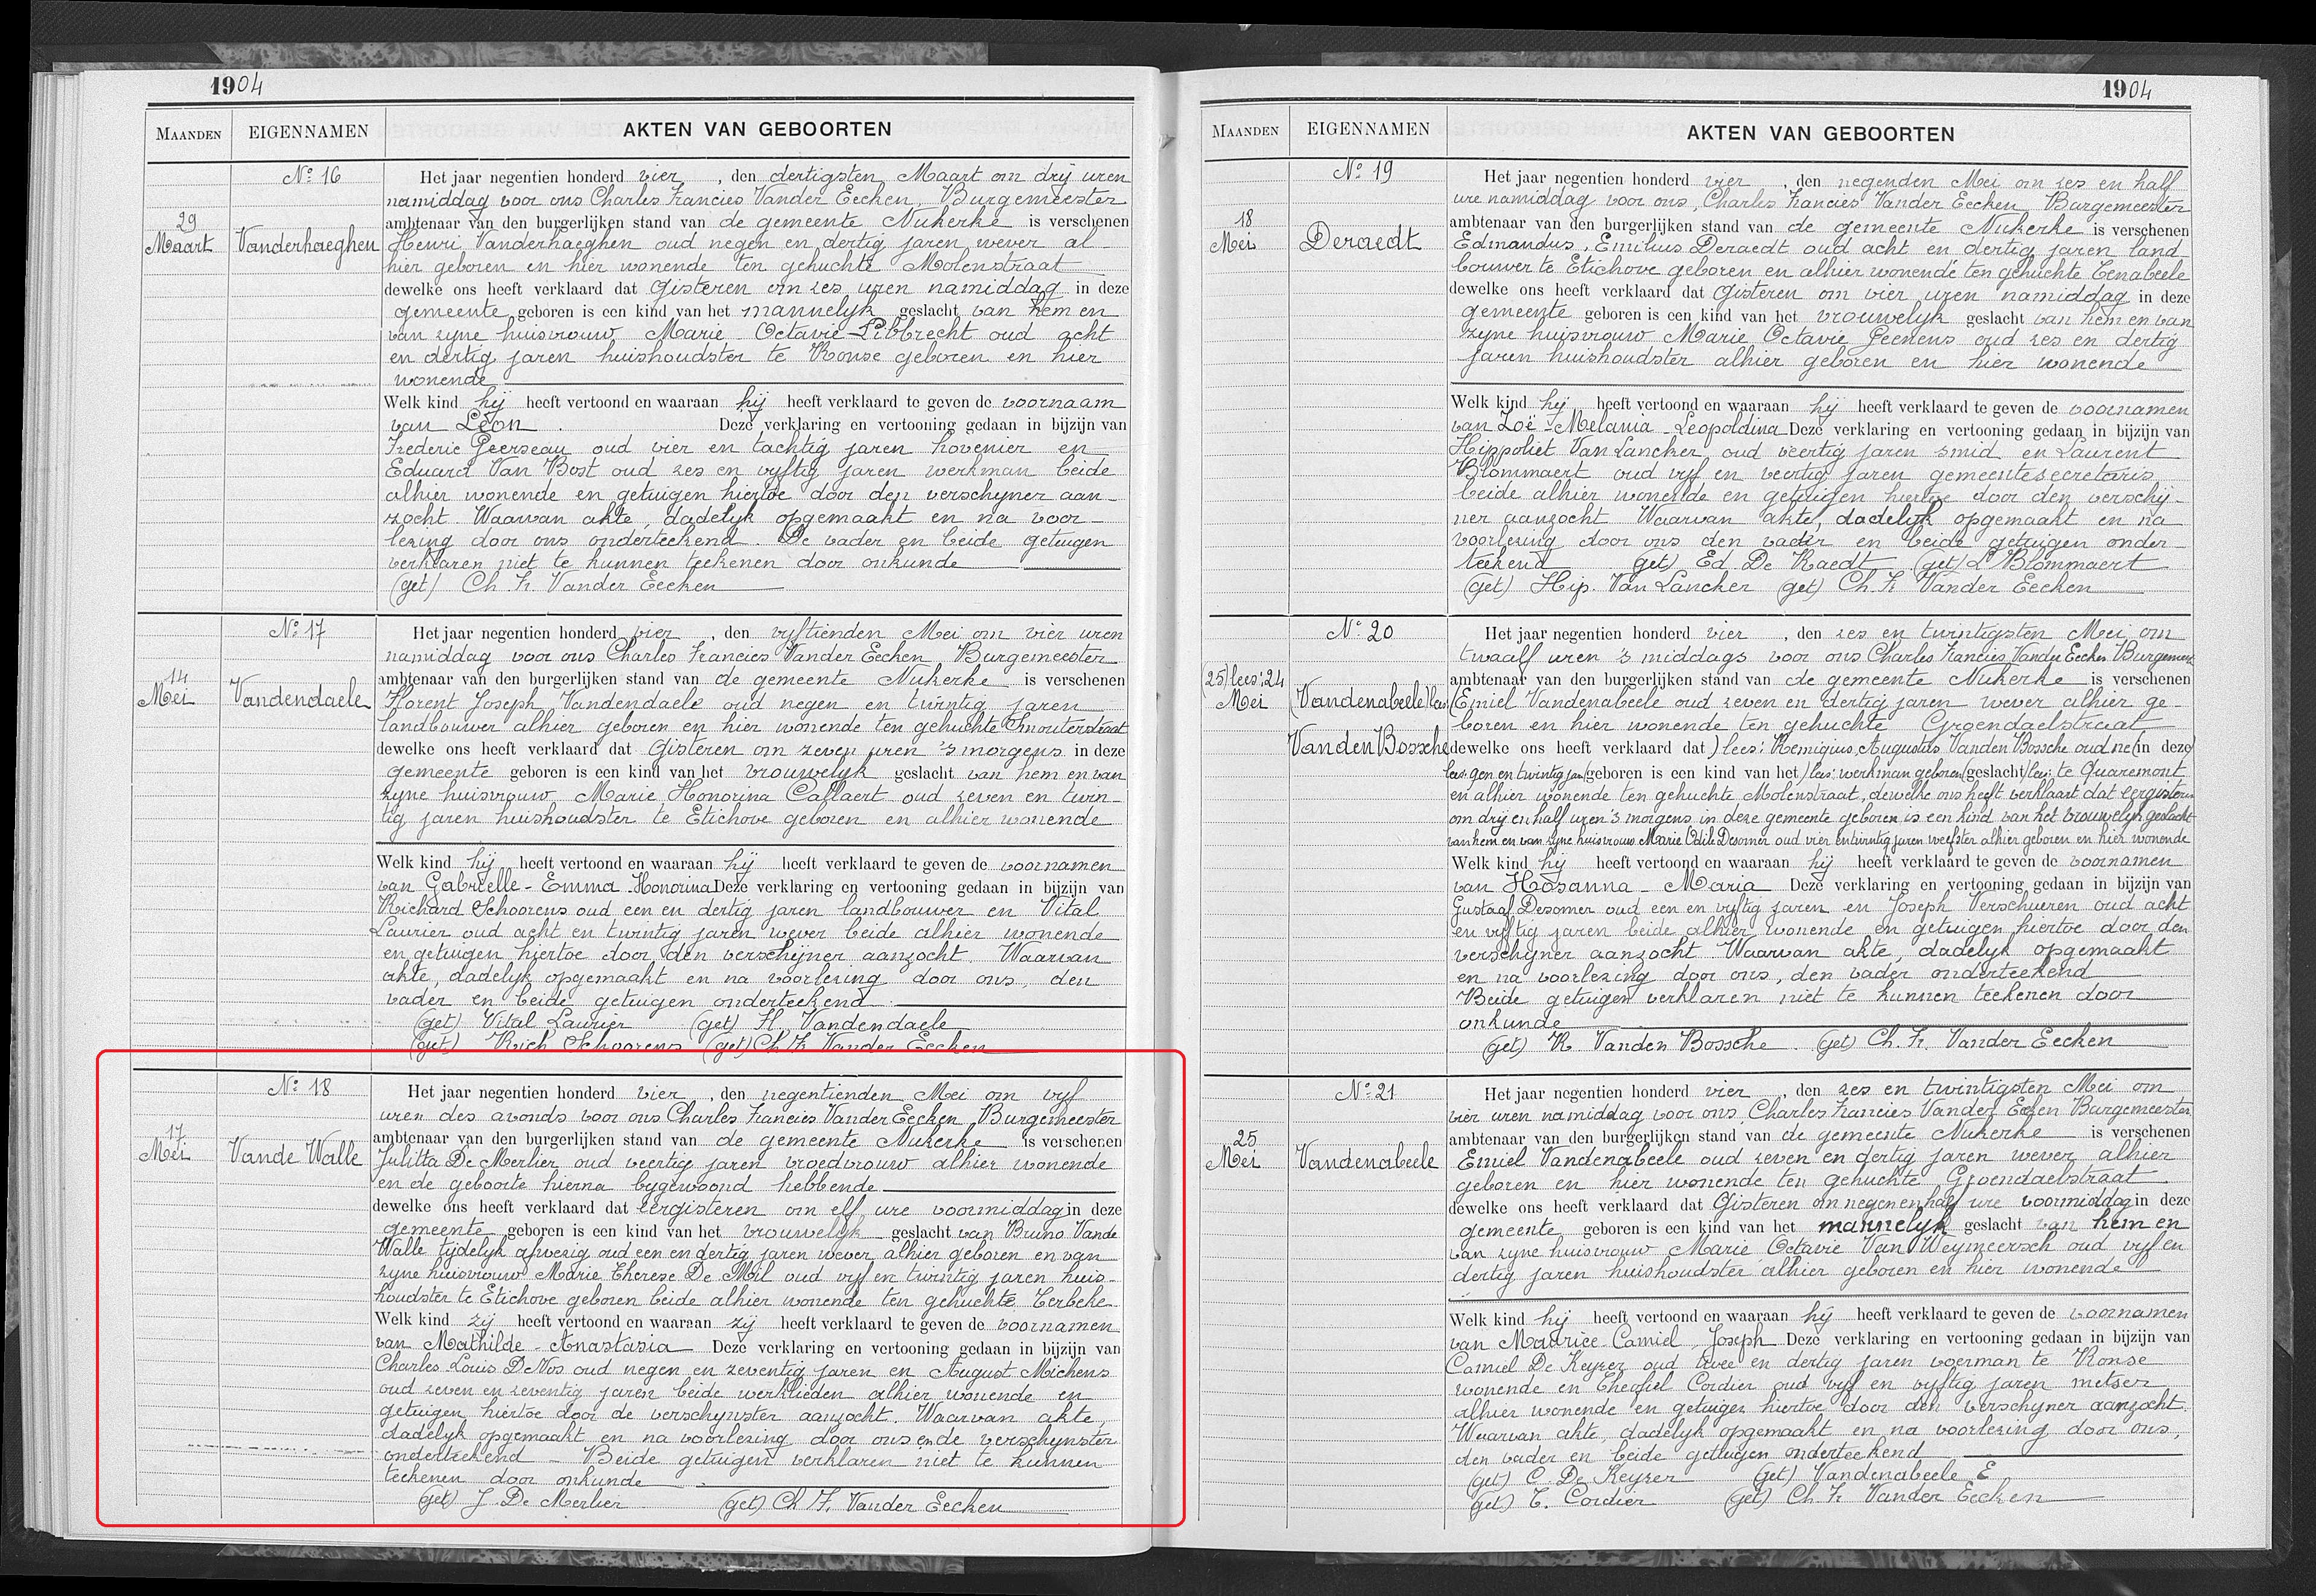 1904
MAANDEN EIGENNAMEN AKTEN VAN GEBOORTEN
No 16
29
Maart
Vanderhaeghen
Het jaar negentien honderd vier , den dertigsten Maart om drij uren
namiddag voor ons Charles Francies Vander Eecken, Burgemeester
ambtenaar van den burgerlijken stand van de gemeente Nukerke is verschenen
Henri Vanderhaeghen oud negen en dertig jaren wever al-
hier geboren en hier wonende ten gehuchte Molenstraat
dewelke ons heeft verklaard dat Gisteren om zes uren namiddag in deze
gemeente geboren is een kind van het mannelyk geslacht van hem en
van zyne huisvrouw Marie Octavie Libbrecht oud acht
en dertig jaren huishoudster te Ronse geboren en hier
wonende
Welk kind hij heeft vertoond en waaraan hij heeft verklaard te geven de voornaam
van Léon . Deze verklaring en vertooning gedaan in bijzijn van
Frederic Geerseau oud vier en tachtig jaren hovenier en
Eduard Van Bost oud zes en vyftig jaren werkman beide
alhier wonende en getuigen hiertoe door den verschyner aan-
zocht. Waarvan akte, dadelyk opgemaakt en na voor-
lezing door ons onderteekend. De vader en beide getuigen
verklaren niet te kunnen teekenen door onkunde
(get) Ch. F. Vander Eecken
No 17
14
Mei
Vandendaele
Het jaar negentien honderd vier , den vyftienden Mei om vier uren
namiddag voor ons Charles Francies Vander Eecken Burgemeester
ambtenaar van den burgerlijken stand van de gemeente Nukerke is verschenen
Florent Joseph Vandendaele oud negen en twintig jaren
landbouwer alhier geboren en hier wonende ten gehuchte Snouterstraat
dewelke ons heeft verklaard dat Gisteren om zeven uren 's morgens in deze
gemeente geboren is een kind van het vrouwelyk geslacht van hem en van
zyne huisvrouw Marie Honorina Caflaert oud zeven en twin-
tig jaren huishoudster te Etichove geboren en alhier wonende
Welk kind hij heeft vertoond en waaraan hij heeft verklaard te geven de voornamen
van Gabrielle - Emma - Honorina Deze verklaring en vertooning gedaan in bijzijn van
Richard Schoorens oud een en dertig jaren landbouwer en Vital
Laurier oud acht en twintig jaren wever beide alhier wonende
en getuigen hiertoe door den verschijner aanzocht. Waarvan
akte, dadelyk opgemaakt en na voorlezing door ons, den
vader en beide getuigen onderteekend.
(get) Vital Laurier (get) Fl. Vandendaele
(get) Rich Schoorens (get) Ch F. Vander Eecken
No 18
17
Mei
Vande Walle
Het jaar negentien honderd vier , den negentienden Mei om vyf
uren des avonds voor ons Charles Francies Vander Eecken Burgemeester
ambtenaar van den burgerlijken stand van de gemeente Nukerke is verschenen
Julitta De Merlier oud veertig jaren vroedvrouw alhier wonende
en de geboorte hierna bygewoond hebbende
dewelke ons heeft verklaard dat eergisteren om elf ure voormiddag in deze
gemeente geboren is een kind van het vrouwelyk geslacht van Bruno Vande
Walle tijdelyk afwezig oud een en dertig jaren wever alhier geboren en van
zyne huisvrouw Marie Therese De Mil oud vyf en twintig jaren huis-
houdster te Etichove geboren beide alhier wonende ten gehuchte Terbeke
Welk kind zij heeft vertoond en waaraan zij heeft verklaard te geven de voornamen
van Mathilde - Anastasia Deze verklaring en vertooning gedaan in bijzijn van
Charles Louis De Vos oud negen en zeventig jaren en August Michens
oud zeven en zeventig jaren beide werklieden alhier wonende en
getuigen hiertoe door de verschynster aanzocht. Waarvan akte,
dadelyk opgemaakt en na voorlezing door ons en de verschynster
onderteekend - Beide getuigen verklaren niet te kunnen
teekenen door onkunde
(get) J. De Merlier (get) Ch. F. Vander Eecken
1904
MAANDEN EIGENNAMEN AKTEN VAN GEBOORTEN
No 19
18
Mei
Deraedt
Het jaar negentien honderd vier , den negenden Mei om zes en half
ure namiddag voor ons, Charles Francies Vander Eecken Burgemeester
ambtenaar van den burgerlijken stand van de gemeente Nukerke is verschenen
Edmandus, Emilius Deraedt oud acht en dertig jaren land
bouwer te Etichove geboren en alhier wonende ten gehuchte Tenabeele
dewelke ons heeft verklaard dat Gisteren om vier uren namiddag in deze
gemeente geboren is een kind van het vrouwelyk geslacht van hem en van
zyne huisvrouw Marie Octavie Geenens oud zes en dertig
jaren huishoudster alhier geboren en hier wonende
Welk kind hij heeft vertoond en waaraan hij heeft verklaard te geven de voornamen
van Zoë - Melania - Leopoldina Deze verklaring en vertooning gedaan in bijzijn van
Hippoliet Van Lancker oud veertig jaren smid en Laurent
Blommaert oud vyf en veertig jaren gemeentesecretaris
beide alhier wonende en getuigen hiertoe door den verschij-
ner aanzocht Waarvan akte, dadelyk opgemaakt en na
voorlezing door ons den vader en beide getuigen onder-
teekend (get) Ed. De Raedt (get) L Blommaert
(get) Hip. Van Lancker (get) Ch. F. Vander Eecken
No 20
(25) lees: 24
Mei
(Vandenabeele) lees
Vanden Bossche
Het jaar negentien honderd vier , den zes en twintigsten Mei om
twaalf uren 's middags voor ons Charles Francies Vander Eecken Burgemeer
ambtenaar van den burgerlijken stand van de gemeente Nukerke is verschenen
(Emiel Vandenabeele oud zeven en dertig jaren wever alhier ge-
boren en hier wonende ten gehuchte Groendaelstraat
dewelke ons heeft verklaard dat) lees: Remigius, Augustus Vanden Bossche oud ne(in deze)
lees: gen en twintig jar(geboren is een kind van het) lees: werkman geboren (geslacht) lees: te Quaremont
en alhier wonende ten gehuchte Molenstraat, dewelke ons heeft verklaart dat eergisteren
om drij en half uren 's morgens in deze gemeente geboren is een kind van het vrouwelyk geslacht
van hem en van zyne huisvrouw Marie Odile Desomer oud vier en twintig jaren weefster alhier geboren en hier wonende
Welk kind hij heeft vertoond en waaraan hij heeft verklaard te geven de voornamen
van Hosanna - Maria Deze verklaring en vertooning gedaan in bijzijn van
Gustaaf Desomer oud een en vyftig jaren en Joseph Verschueren oud acht
en vyftig jaren beide alhier wonende en getuigen hiertoe door den
verschyner aanzocht. Waarvan akte, dadelyk opgemaakt
en na voorlezing door ons, den vader onderteekend
Beide getuigen verklaren niet te kunnen teekenen door
onkunde
(get) R. Vanden Bossche. (get) Ch. F. Vander Eecken
No 21
25
Mei
Vandenabeele
Het jaar negentien honderd vier , den zes en twintigsten Mei om
vier uren namiddag voor ons, Charles Francies Vander Eecken Burgemeester
ambtenaar van den burgerlijken stand van de gemeente Nukerke is verschenen
Emiel Vandenabeele oud zeven en dertig jaren wever alhier
geboren en hier wonende ten gehuchte Groendaelstraat
dewelke ons heeft verklaard dat Gisteren om negen en half ure voormiddag in deze
gemeente geboren is een kind van het mannelyk geslacht van hem en
van zyne huisvrouw Marie Octavie Van Weymeersch oud vyf en
dertig jaren huishoudster alhier geboren en hier wonende
Welk kind hij heeft vertoond en waaraan hij heeft verklaard te geven de voornamen
van Maurice - Camiel, Joseph Deze verklaring en vertooning gedaan in bijzijn van
Camiel De Keyzer oud twee en dertig jaren voerman te Ronse
wonende en Theofiel Cordier oud vyf en vyftig jaren metser
alhier wonende en getuigen hiertoe door den verschyner aanzocht.
Waarvan akte, dadelyk opgemaakt en na voorlezing door ons,
den vader en beide getuigen onderteekend
(get) C. De Keyzer (get) Vandenabeele E
(get) T. Cordier (get) Ch. F. Vander Eecken